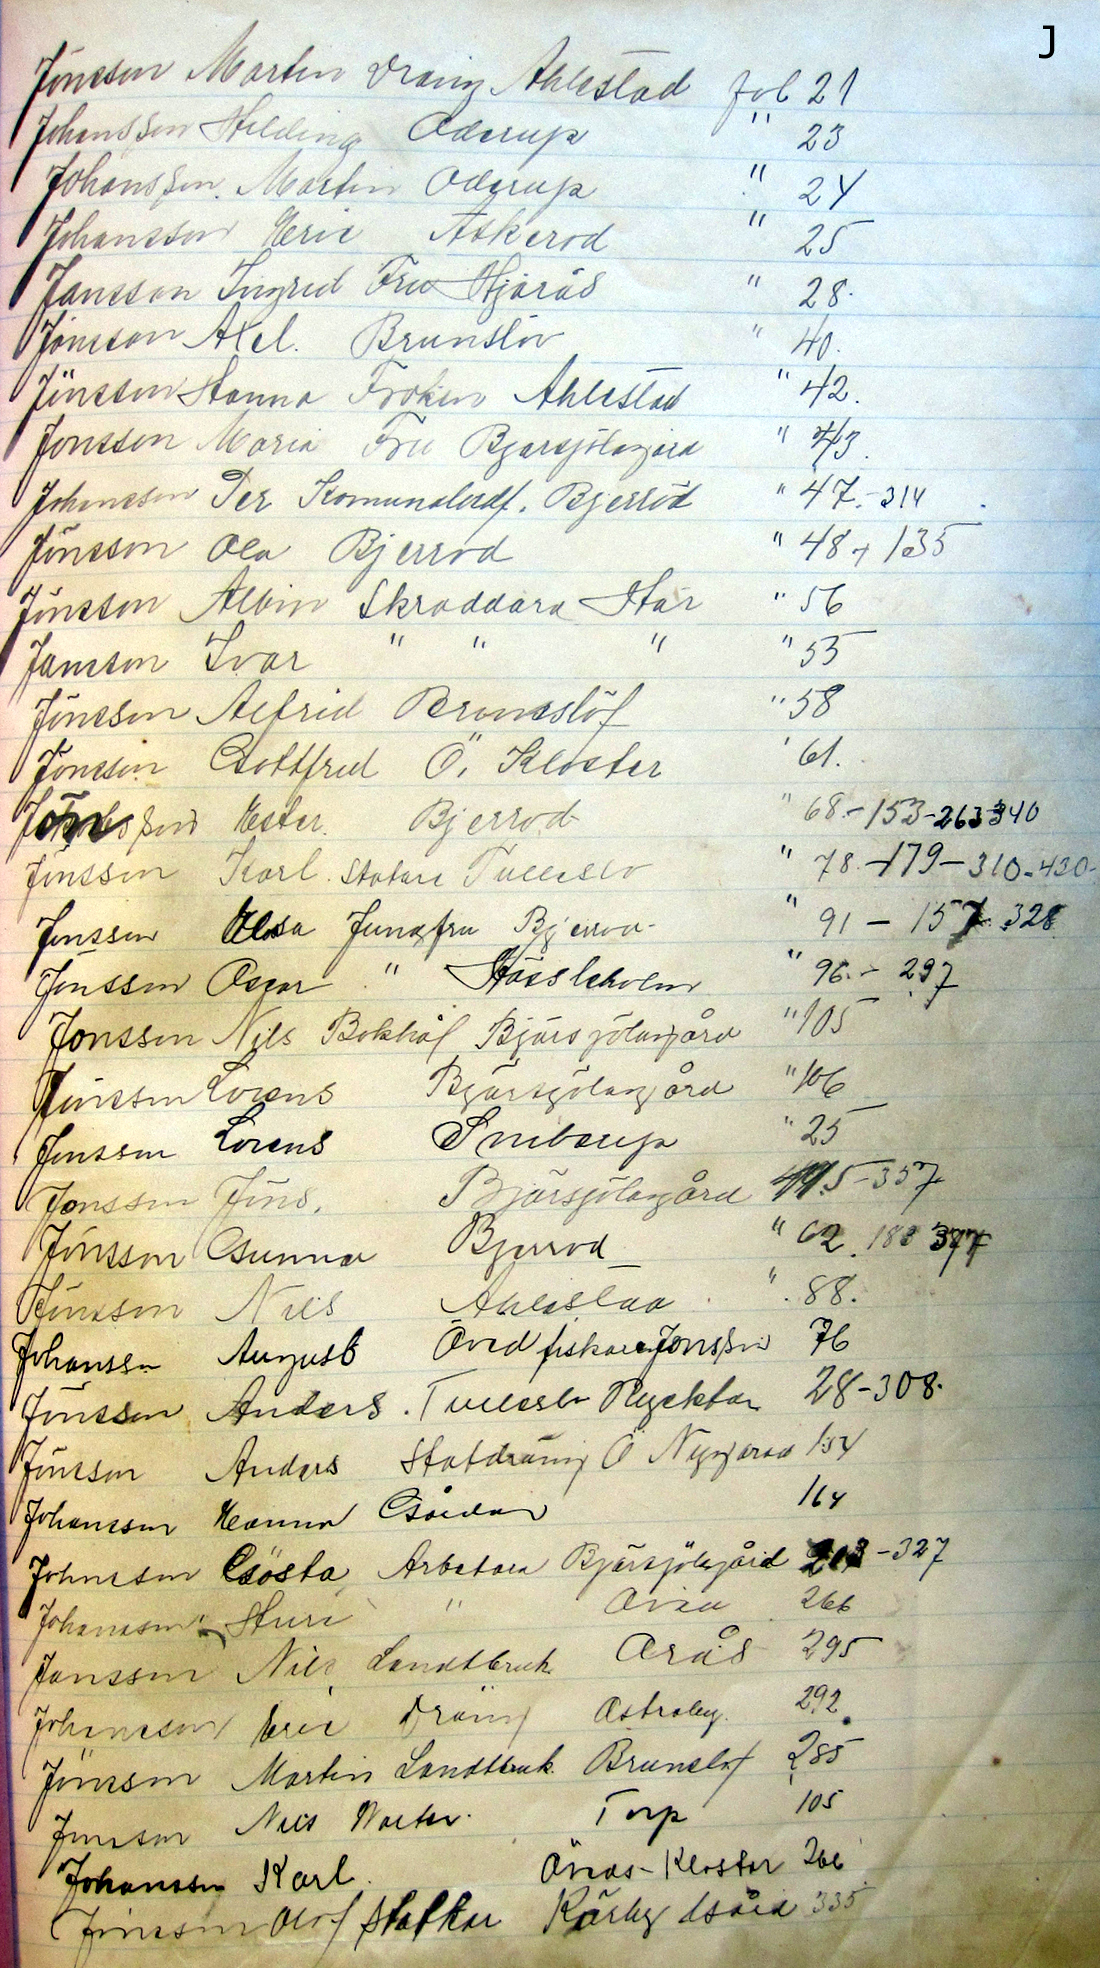 J
Jönsson Martin Dräng Ahlestad fol 21
Johansson Hilding Oderup " 23
Johansson Martin Oderup " 24
Johansson Eric Askerod " 25
Jansson Ingrid Fru Hjärås " 28.
Jönsson Axel. Brunslöv " 40.
Jönsson Hanna Fröken Ahlestad " 42.
Jönsson Maria Fru Bjärsjölagård " 43.
Johansson Per Komunalordf. Bjerröd " 47.-314
Jönsson Ola Bjerröd " 48 + 135
Jönsson Albin Skräddare Här " 56
Jansson Ivar " " " " 55
Jönsson Alfrid Brunslöf " 58
Jönsson Gottfrid Ö. Kloster " 61.
Ester. Bjerröd " 68.-153-263-340
Jönsson Karl. Statare Tulleslo " 78.-179-310-430-
Jönsson Elsa Jungfru Bjerröd " 91 - 157 328
Jönsson Oscar " Hässleholm " 96.- 297
Jönsson Nils Bokhål Bjärsjölagård " 105
Jönsson Lorens Bjärsjölagård " 106
Jönsson Lorens Sniberup " 25
Jönsson Jöns. Bjärsjölagård -357
Jönsson Gunnar Bjerröd " 62. 183 377
Jönsson Nils Ahlestad " 88.
Johansson August Öved fiskare Jönsson 76
Jönsson Anders. Tulleslo Rycktare 28-308.
Jönsson Anders Statdräng Ö Nygård 154
Johansson Hanna Gårdar 164
Johnsson Gösta Arbetare Bjärsjölagård -327
Johansson Sture " Öved 266
Jansson Nils Landtbruk. Orås 295
Johansson Eric Dräng Östraby. 292.
Jönsson Martin Landtbruk. Brunslöf 285
Jönsson Nils Walter. Torp 105
Johansson Karl. Öveds-Kloster 266
Jönsson Olof Stalkar Kärby Gård 335